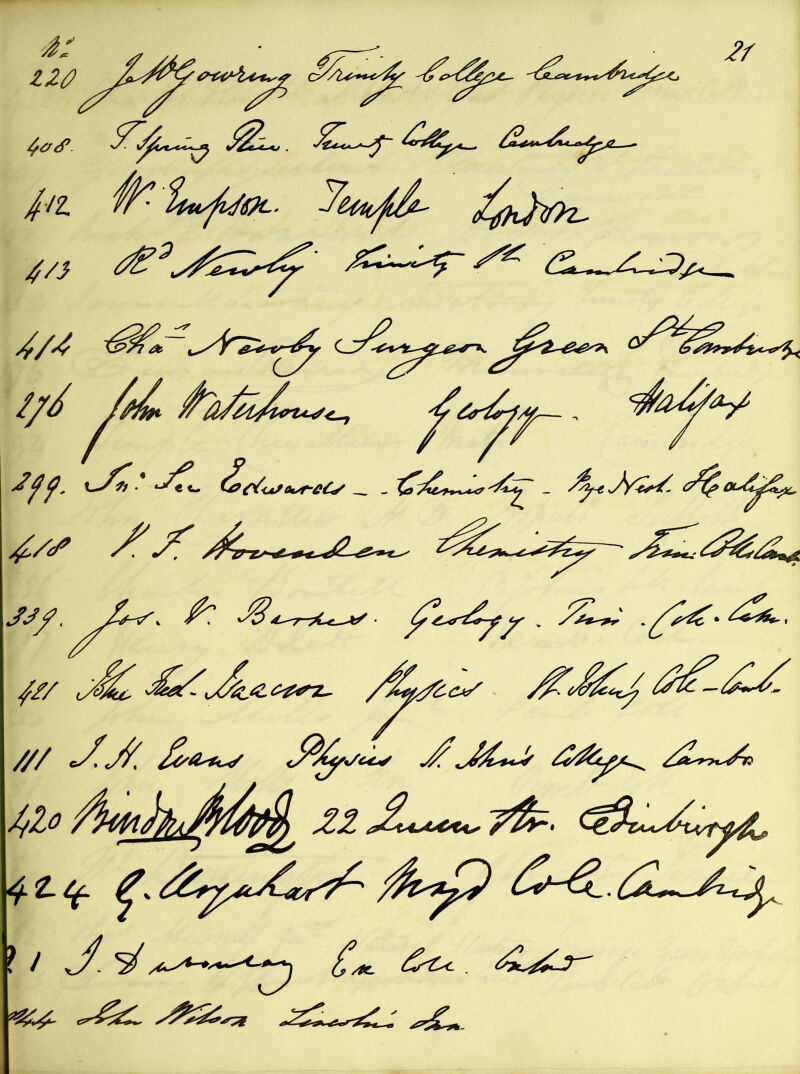 No. 21
220 J. W. Gowring Trinity College Cambridge
408. T. Spring Rice. Trinity College Cambridge
412 W. Empson. Temple London
413 Rd Newby Trinity St Cambridge
414 Chas Newby Surgeon Green St Cambridge
276 John Waterhouse, Geology. Halifax
299. Jno: Lee Edwards - Chemistry - Pye Nest. Halifax
418 V. F. Hovenden Chemistry Trin: Coll: Camb.
339. Jos. W. Barnes. Geology. Trin. Coll. Cam.
421 John Fred. Isaacson Physics St. John's Coll - Camb.
111 J. H. Evans Physics St. John's College Camb.
420 Bindon Blood 22 Queen Str. Edinburgh
424 G. Urquhart Magd Coll. Cambridge
1 J. Ex Coll. Oxford
44 John Wilson Lincoln's Inn